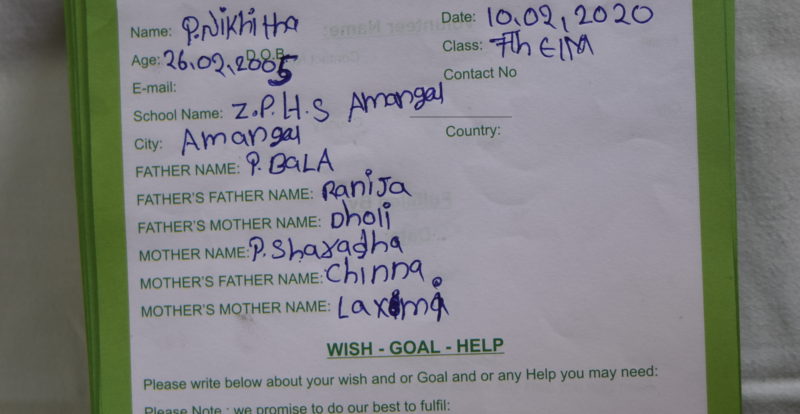 Name: P.Nikhitha Date: 10.02,2020
Age: 26.02.2005 D.O.B Class: 7th E/M
E-mail: Contact No
School Name: Z.P.H.S Amangal
City: Amangal Country:
FATHER NAME: P. BaLA
FATHER'S FATHER NAME: RaniJa
FATHER'S MOTHER NAME: Dholi
MOTHER NAME: P. Sharadha
MOTHER'S FATHER NAME: Chinna.
MOTHER'S MOTHER NAME: Laximi
WISH - GOAL - HELP
Please write below about your wish and or Goal and or any Help you may need:
Please Note : we promise to do our best to fulfil: